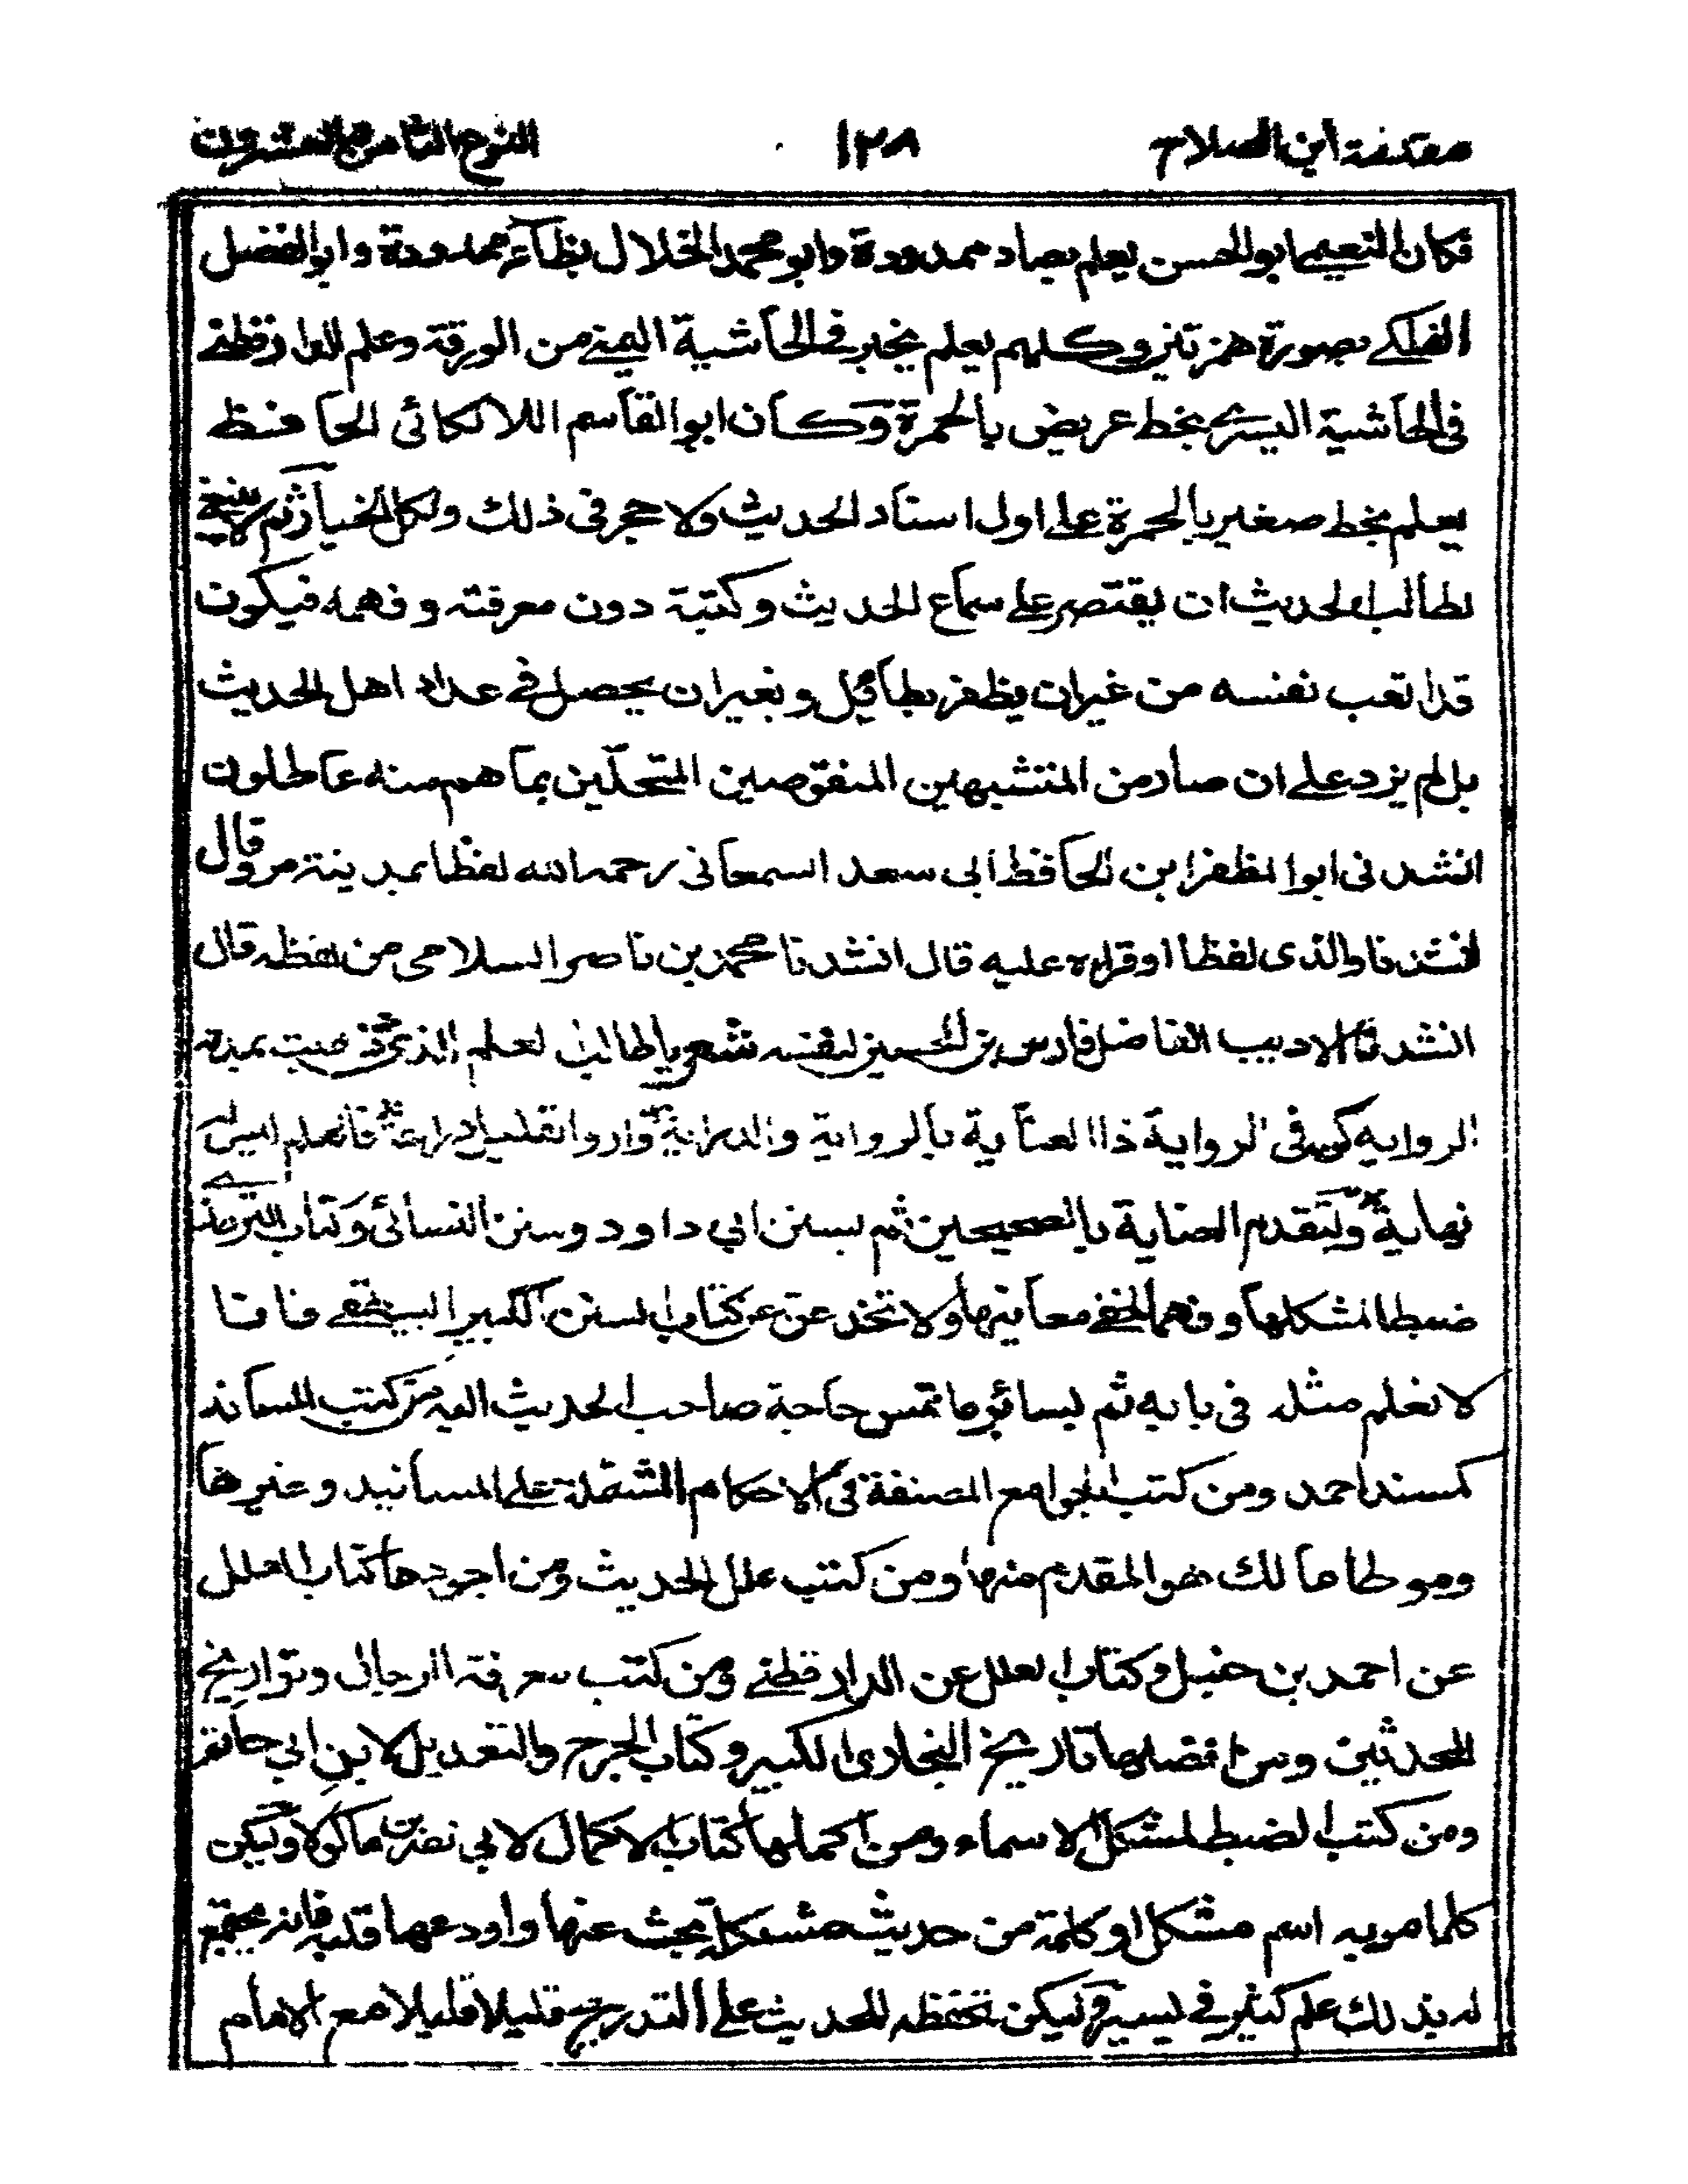 مقدمة ابن الصلاح ١٢٨ النوع الثامن والعشرون
فكان النعيمي ابو الحسن يعلم بصاد ممدودة وابو محمد الخلال بظآء ممدودة وابو الفضل
الفلكي بصورة همزتين وكلهم يعلم بحبر في الحاشية اليمنى من الورقة وعلم الدارقطني
في الحاشية اليسرى بخط عريض بالحمرة وكان ابو القاسم اللالكائى الحافظ
يعلم بخط صغير بالحمرة على اول اسناد الحديث ولا حجر فى ذلك ولكل الخيار ثم لا ينبغي
لطالب الحديث ان يقتصر على سماع الحديث وكتبة دون معرفته وفهمه فيكون
قد اتعب نفسه من غير ان يظفر بطآئل وبغير ان يحصل في عداد اهل الحديث
بل لم يزد على ان صار من المتشبهين المنقوصين المتحلّين بما هم منه عاطلون
انشدنى ابو المظفر ابن الحافظ ابى سعد السمعانى رحمه الله لفظا بمدينة مرو قال
انشدنا والدى لفظا او قراءة عليه قال انشدنا محمد بن ناصر السلامى من لفظه قال
انشدنا الاديب الفاضل فارس بن الحسين لنفسه شعر يا طالب لعلم الذى ذهبت بمدته
الروايه كن فى الرواية ذا العناية بالرواية والدراية وارو القليل وراعه فالعلم ليس له
نهاية ولتقدم العناية بالصحيحين ثم بسنن ابي داود وسنن النسائى وكتاب الترمذي
ضبطا لمشكلها وفهما لخفى معانيها ولا تخدعن عن كتاب السنن الكبير للبيهقي فانا
لا نعلم مثله فى بابه ثم بسائر ما تمس حاجة صاحب الحديث اليه من كتب المساند
كمسند احمد ومن كتب الجوامع المصنفة فى الاحكام المشتملة على المسانيد وغيرها
وموطا مالك هو المقدم منها ومن كتب علل الحديث ومن اجودها كتاب العلل
عن احمد بن حنبل وكتاب العلل عن الدارقطنى ومن كتب معرفة الرجال وتواريخ
المحدثين ومن افضلها تاريخ البخارى الكبير وكتاب الجرح والتعديل لابن ابي حاتم
ومن كتب الضبط لمشكل الاسماء ومن اكملها كتاب الاكمال لابي نصر بن ماكولا وليكن
كلما مر به اسم مشكل او كلمة من حديث مشكلة بحث عنها واودعها قلبه فانه يجتمع
له بذلك علم كثير في يسير وليكن تحفظه للحديث على التدريج قليلا قليلا مع الامام